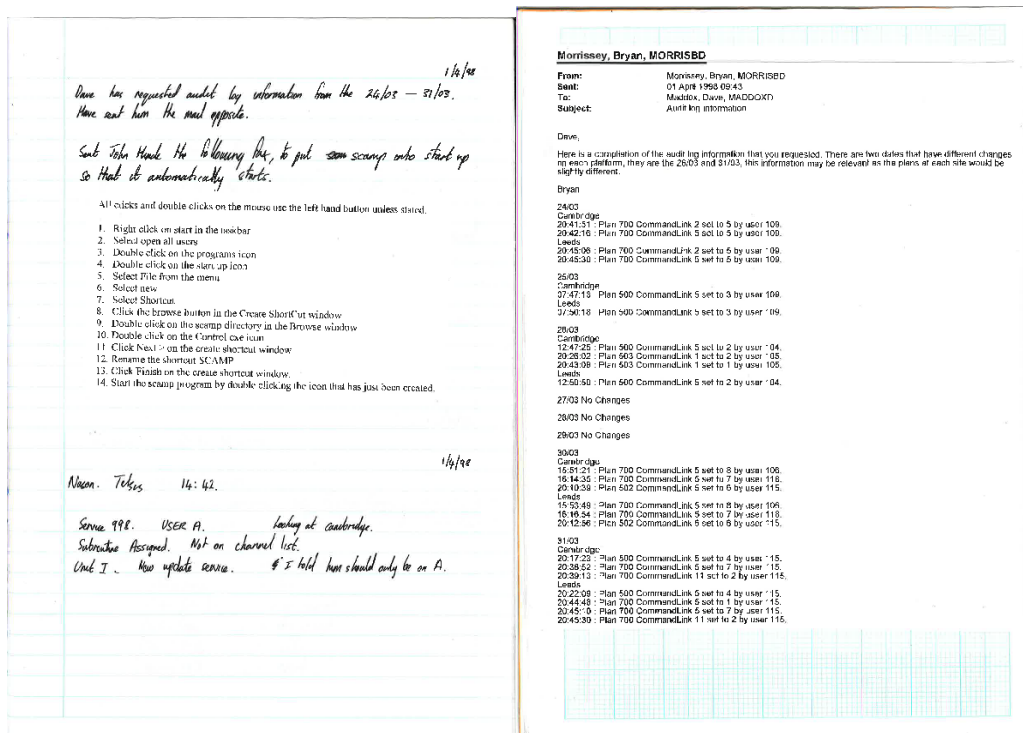 1/4/98
Dave has requested audit log information from the 24/03 — 31/03.
Have sent him the mail opposite.
Sent John the following, to put scamp onto start up
so that it automatically starts.
All clicks and double clicks on the mouse use the left hand button unless stated.
1. Right click on start in the taskbar
2. Select open all users
3. Double click on the programs icon
4. Double click on the start up icon
5. Select File from the menu
6. Select new
7. Select Shortcut
8. Click the browse button in the Create ShortCut window
9. Double click on the scamp directory in the Browse window
10. Double click on the Control exe icon
11. Click Next > on the create shortcut window
12. Rename the shortcut SCAMP
13. Click Finish on the create shortcut window.
14. Start the scamp program by double clicking the icon that has just been created.
1/4/98
14:42.
Service 998. USER A. Looking at cambridge.
Subroutine Assigned. Not on channel list.
Unit I. New update service. & I told him should only be on A.
Morrissey, Bryan, MORRISBD
From: Morrissey, Bryan, MORRISBD
Sent: 01 April 1998 09:43
To: Maddox, Dave, MADDOXD
Subject: Audit log information
Dave,
Here is a compilation of the audit log information that you requested. There are two dates that have different changes
on each platform, they are the 26/03 and 31/03, this information may be relevant as the plans at each site would be
slightly different.
Bryan
24/03
Cambridge
20:41:51 : Plan 700 CommandLink 2 set to 5 by user 109.
20:42:16 : Plan 700 CommandLink 5 set to 5 by user 109.
Leeds
20:45:06 : Plan 700 CommandLink 2 set to 5 by user 109.
20:45:30 : Plan 700 CommandLink 5 set to 5 by user 109.
25/03
Cambridge
07:47:13 Plan 500 CommandLink 5 set to 3 by user 109.
Leeds
07:50:18 Plan 500 CommandLink 5 set to 3 by user 109.
26/03
Cambridge
12:47:25 : Plan 500 CommandLink 5 set to 2 by user 104.
20:26:02 : Plan 503 CommandLink 1 set to 2 by user 105.
20:43:09 : Plan 503 CommandLink 1 set to 1 by user 105.
Leeds
12:50:50 : Plan 500 CommandLink 5 set to 2 by user 104.
27/03 No Changes
28/03 No Changes
29/03 No Changes
30/03
Cambridge
15:51:21 : Plan 700 CommandLink 5 set to 8 by user 106.
16:14:35 : Plan 700 CommandLink 5 set to 7 by user 118.
20:10:39 : Plan 502 CommandLink 5 set to 6 by user 115.
Leeds
15:53:49 : Plan 700 CommandLink 5 set to 8 by user 106.
16:16:54 : Plan 700 CommandLink 5 set to 7 by user 118.
20:12:56 : Plan 502 CommandLink 5 set to 6 by user 115.
31/03
Cambridge
20:17:23 : Plan 500 CommandLink 5 set to 4 by user 115.
20:38:52 : Plan 700 CommandLink 5 set to 7 by user 115.
20:39:13 : Plan 700 CommandLink 11 set to 2 by user 115.
Leeds
20:22:09 : Plan 500 CommandLink 5 set to 4 by user 115.
20:44:48 : Plan 700 CommandLink 5 set to 1 by user 115.
20:45:10 : Plan 700 CommandLink 5 set to 7 by user 115.
20:45:30 : Plan 700 CommandLink 11 set to 2 by user 115.